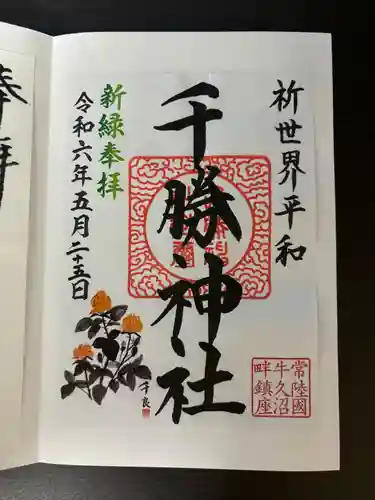 祈世界平和
千勝神社
新緑奉拝
令和六年五月二十五日
常陸國
牛久沼
畔鎮座
千良
奉拝